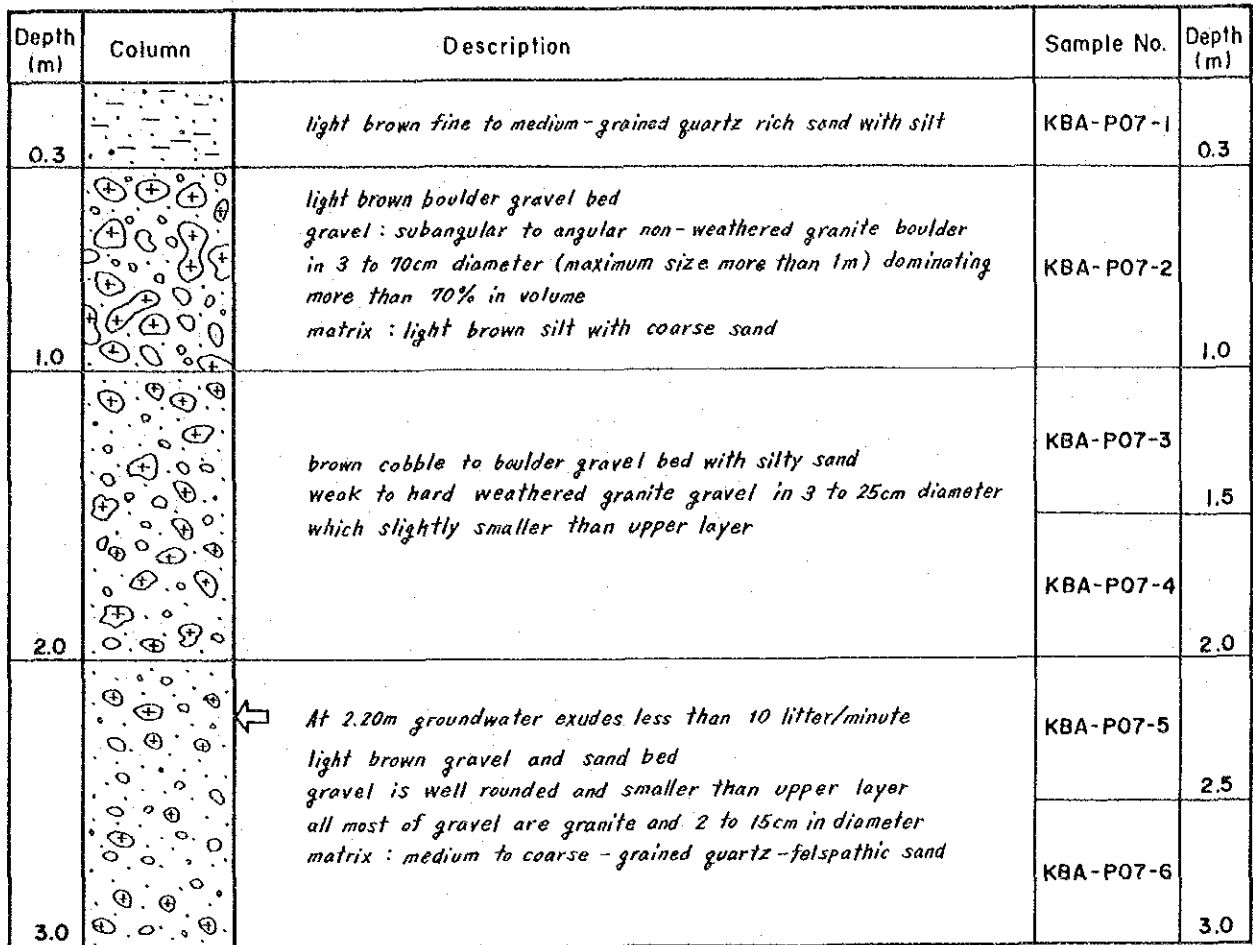 Depth (m) Column Description Sample No. Depth (m)
light brown fine to medium-grained quartz rich sand with silt KBA-P07-1
0.3 0.3
light brown boulder gravel bed
gravel : subangular to angular non-weathered granite boulder
in 3 to 70cm diameter (maximum size more than 1m) dominating KBA-P07-2
more than 70% in volume
matrix : light brown silt with coarse sand
1.0 1.0
KBA-P07-3
brown cobble to boulder gravel bed with silty sand
weak to hard weathered granite gravel in 3 to 25cm diameter
1.5
which slightly smaller than upper layer
KBA-P07-4
2.0 2.0
At 2.20m groundwater exudes less than 10 litter/minute KBA-P07-5
light brown gravel and sand bed
gravel is well rounded and smaller than upper layer
2.5
all most of gravel are granite and 2 to 15cm in diameter
matrix : medium to coarse-grained quartz-felspathic sand
KBA-P07-6
3.0 3.0